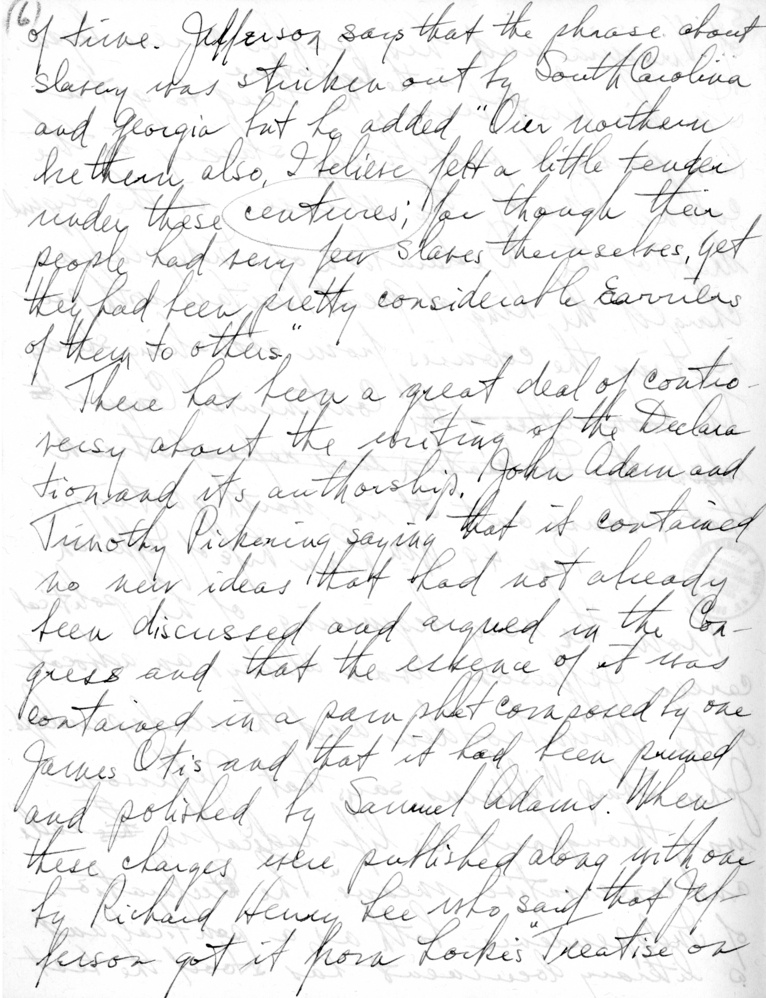 (6)
of time. Jefferson says that the phrase about
slavery was stricken out by South Carolina
and Georgia but he added "Our northern
brethern also, I believe felt a little tender
under these centures; for though their
people had very few slaves themselves, yet
they had been pretty considerable carriers
of them to others"
There has been a great deal of contro-
versy about the writing of the Declara
tion and its authorship. John Adam and
Timothy Pickering saying that it contained
no new ideas that had not already
been discussed and argued in the Con-
gress and that the essence of it was
contained in a pamphlet composed by one
James Otis and that it had been pruned
and polished by Samuel Adams. When
these charges were published along with one
by Richard Henry Lee who said that Jef-
ferson got it from Locke's "Treatise on